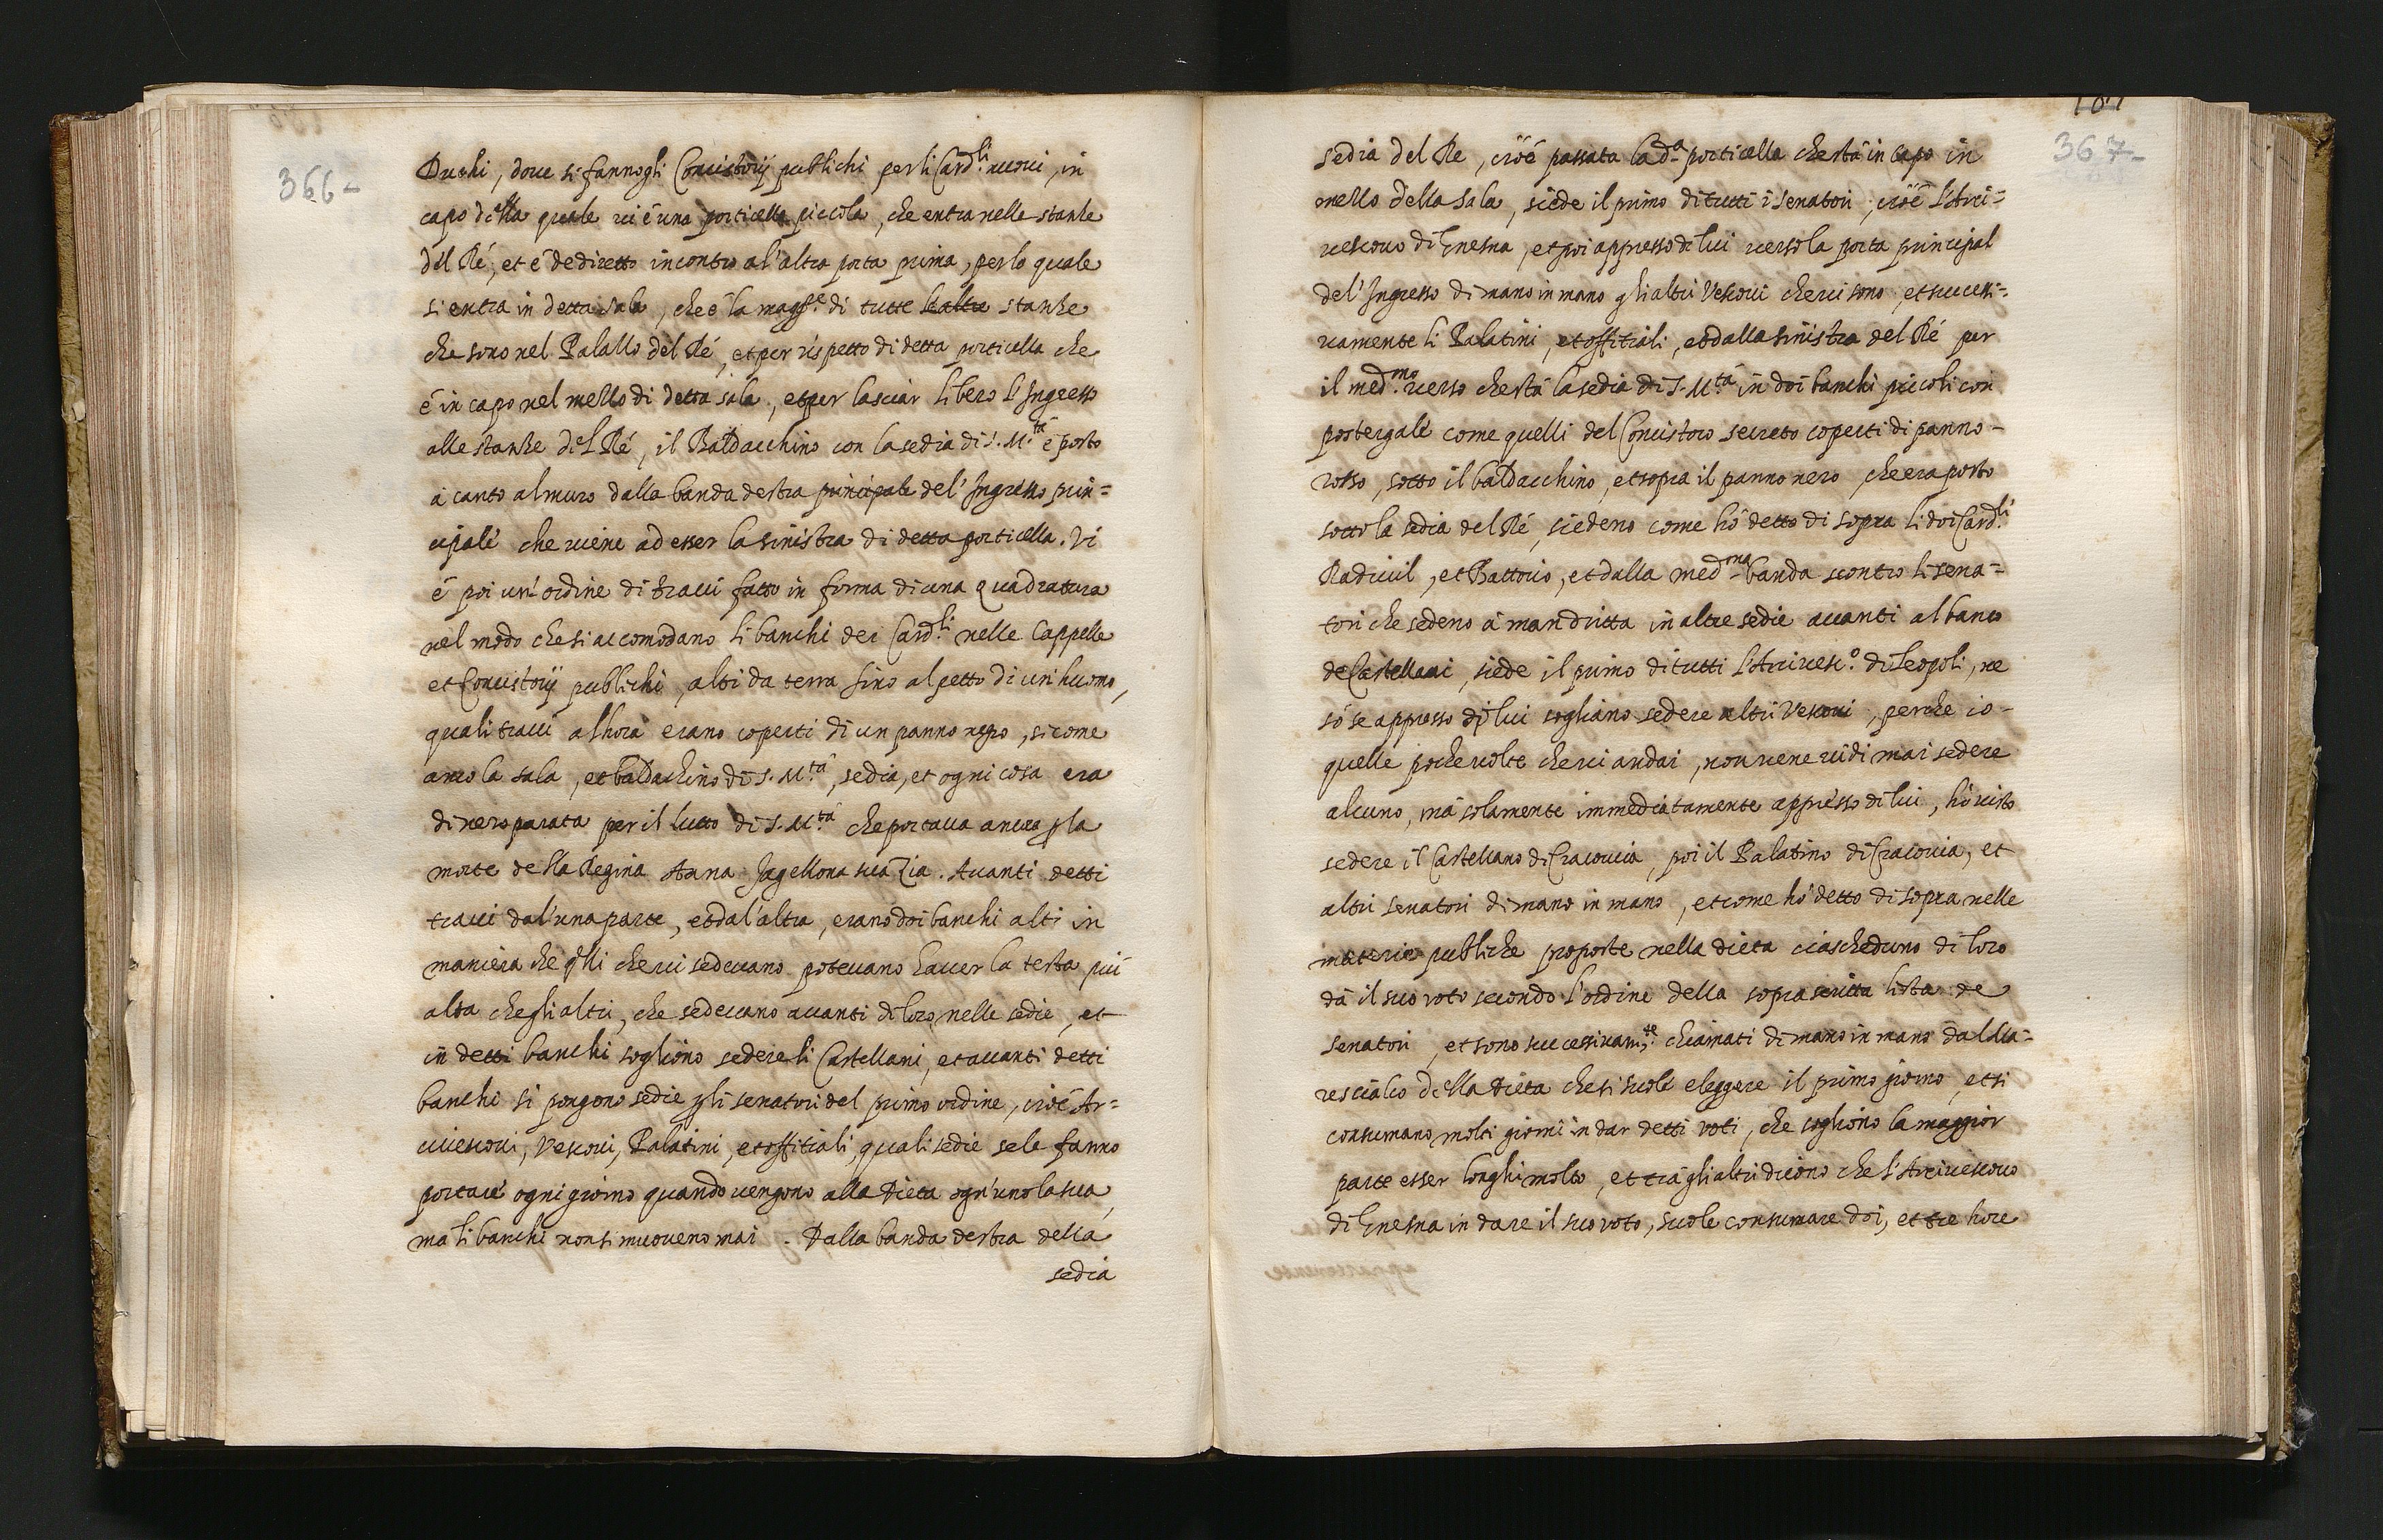 366-
Duchi, doue si fanno gli Concistorij publichi per li Card.li nuoui, in
capo della quale ui é una porticella piccola, che entra nelle stanze
del Ré, et é dediretto incontro al'altra porta prima, per lo quale
si entra in detta sala, che é la magg.re di tutte le altre stanze
che sono nel Palazzo del Ré, et per rispetto di detta porticella che
é in capo nel mezzo di detta sala, et per lasciar libero l'Ingresso
alle stanze del Ré, il Baldacchino con la sedia di S. M.tá é posto
á canto al muro dalla banda destra principale del'Ingresso prin=
cipale che uiene ad esser la sinistra di detta porticella. Vi
é poi un'ordine di traui fatto in forma di una quadratura
nel modo che si accomodano li banchi dei Card.li nelle Cappelle
et Concistorij publichi, alti da terra sino al petto di un'huomo,
quali traui alhora erano coperti di un panno negro, si come
anco la sala, et baldachino di S. M.tá, sedia, et ogni cosa era
di nero parata per il lutto di S. M.tá che portaua ancora p la
morte della Regina Anna Jagellona sua Zia. Auanti detti
traui dal'una parte, et dal'altra, erano doi banchi alti in
maniera che qlli che ui sedeuano poteuano hauer la testa piú
alta che gli altri, che sedeuano auanti di loro nelle sedie, et
in detti banchi sogliono sedere li Castellani, et auanti detti
banchi si pongono sedie p li senatori del primo ordine, cioé Ar=
ciuescoui, Vescoui, Palatini, et offitiali, quali sedie se le fanno
portare ogni giorno quando uengono alla Dieta ogn'uno la sua,
ma li banchi non si muoueno mai. Dalla banda destra della
sedia
367-
sedia del Re, cioé passata la d.a porticella che stá in capo in
mezzo della sala, siede il primo di tutti i senatori, cioé l'Arci=
uescouo di Gnesna, et poi appresso di lui uerso la porta principal
del'Ingresso di mano in mano gli altri Vescoui che ui sono, et successi=
uamente li Palatini, et offitiali, et dalla sinistra del Ré per
il med.mo uerso che stá la sedia di S. M.tá in doi banchi piccoli con
postergale come quelli del Concistoro secreto coperti di panno-
rosso, sotto il baldacchino, et sopra il panno nero, che era posto
sotto la sedia del Ré, siedeno come hó detto di sopra li doi Card.li
Radiuil, et Battorio, et dalla med.ma banda scontro li sena=
tori che sedeno á man dritta in altre sedie auanti al banco
de Castellani, siede il primo di tutti l'Arciuesc.o di Leopoli, ne
só se appresso di lui sogliano sedere altri Vescoui, perche io-
quelle poche uolte che ui andai, non uene uidi mai sedere
alcuno, má solamente immediatamente appresso di lui, hó uisto
sedere il Castellano di Cracouia, poi il Palatino di Cracouia, et
altri senatori di mano in mano, et come hó detto di sopra nelle
materie publiche proposte nella dieta ciascheduno di loro
dá il suo voto secondo l'ordine della soprascritta lista de
senatori, et sono successiuam.te chiamati di mano in mano dal Ma=
resciallo della Dieta che si suole eleggere il primo giorno, et si
consumano molti giorni in dar detti voti, che sogliono la maggior
parte esser longhi molto, et trá gli altri dicono che l'Arciuescouo
di Gnesna in dare il suo voto, suole consumare doi, et tre hore